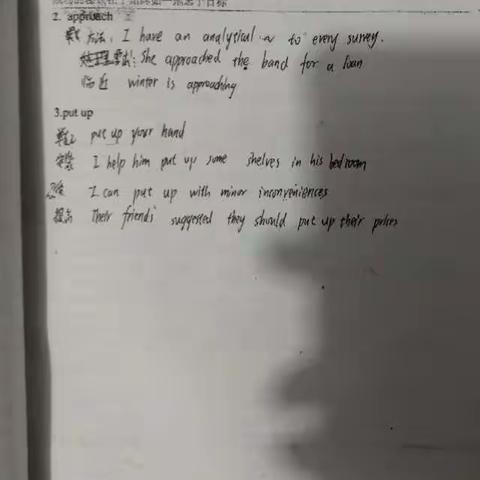 2. approach
方法: I have an analytical ~ to every survey.
: She approached the band for a loan
临近 winter is approaching
3.put up
put up your hand
安装 I help him put up some shelves in his bedroom
忍受 I can put up with minor inconveniences
提高 Their friends suggested they should put up their prices